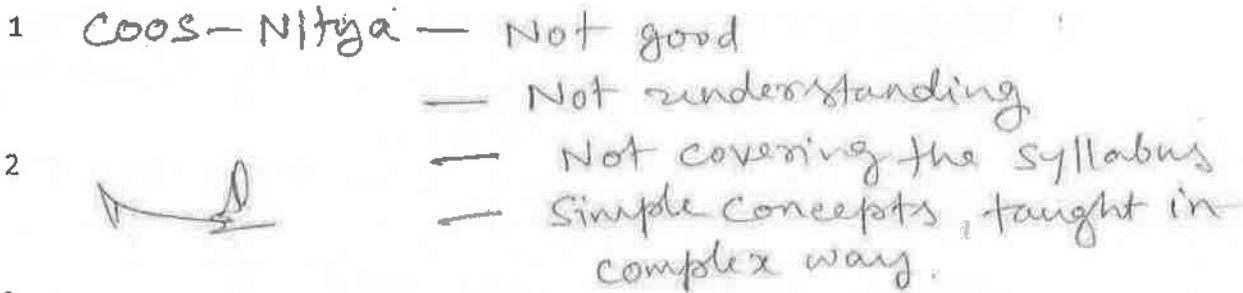 1 Coos - Nitya - Not good
- Not understanding
2 - Not covering the syllabus
- Simple concepts, taught in
complex way.